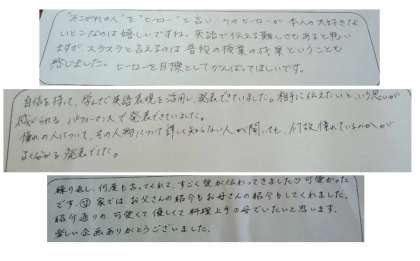 "あこがれの人"を"ヒーロー"と言い、そのヒーローが本人の大好きな
いとこなのは嬉しいですね。英語で伝える難しさもあると思い
ますがスラスラと言えるのは普段の授業の成果ということも
感じました。ヒーローを目標としてがんばってほしいです。
自信を持って、学んだ英語表現を活用し、発表できていました。相手に伝えたいという思いが
感じられるパフォーマンスで発表できていました。
憧れの人について、その人物について詳しく知らない人が聞いても、何故憧れているのかが
よく分かる発表でした。
繰り返し、何度も言ってくれて、すごく愛が伝わってきました 可愛かった
です。家では、お父さんの紹介もお母さんの紹介もしてくれました。
紹介通りの、可愛くて優しくて料理上手の母でいたいと思います。
楽しい企画ありがとうございました。